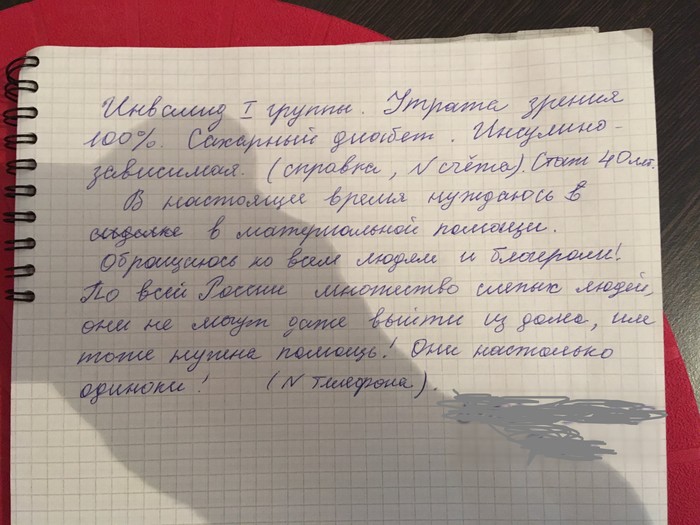 Инвалид I группы. Утрата зрения
100%. Сахарный диабет. Инсулино-
зависимая. (справка, N счёта). Стаж 40 лет.
В настоящее время нуждаюсь в
сиделке в материальной помощи.
Обращаюсь ко всем людям и блогерам!
По всей России множество слепых людей,
они не могут даже выйти из дома, им
тоже нужна помощь! Они настолько
одиноки! (N телефона).